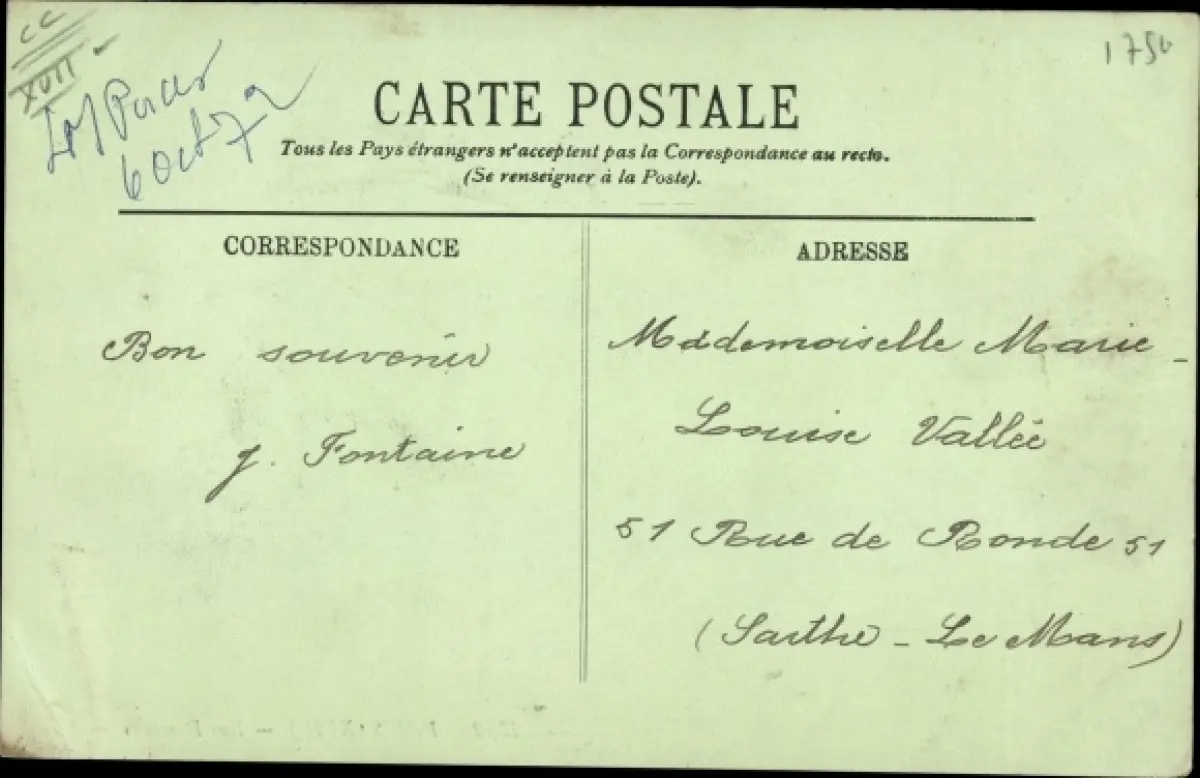 CC
XVII
1750
6 Oct 79
CARTE POSTALE
Tous les Pays étrangers n'acceptent pas la Correspondance au recto.
(Se renseigner à la Poste).
CORRESPONDANCE
Bon souvenir
J. Fontaine
ADRESSE
Mademoiselle Marie-
Louise Vallée
51 Rue de Ronde 51
(Sarthe - Le Mans)